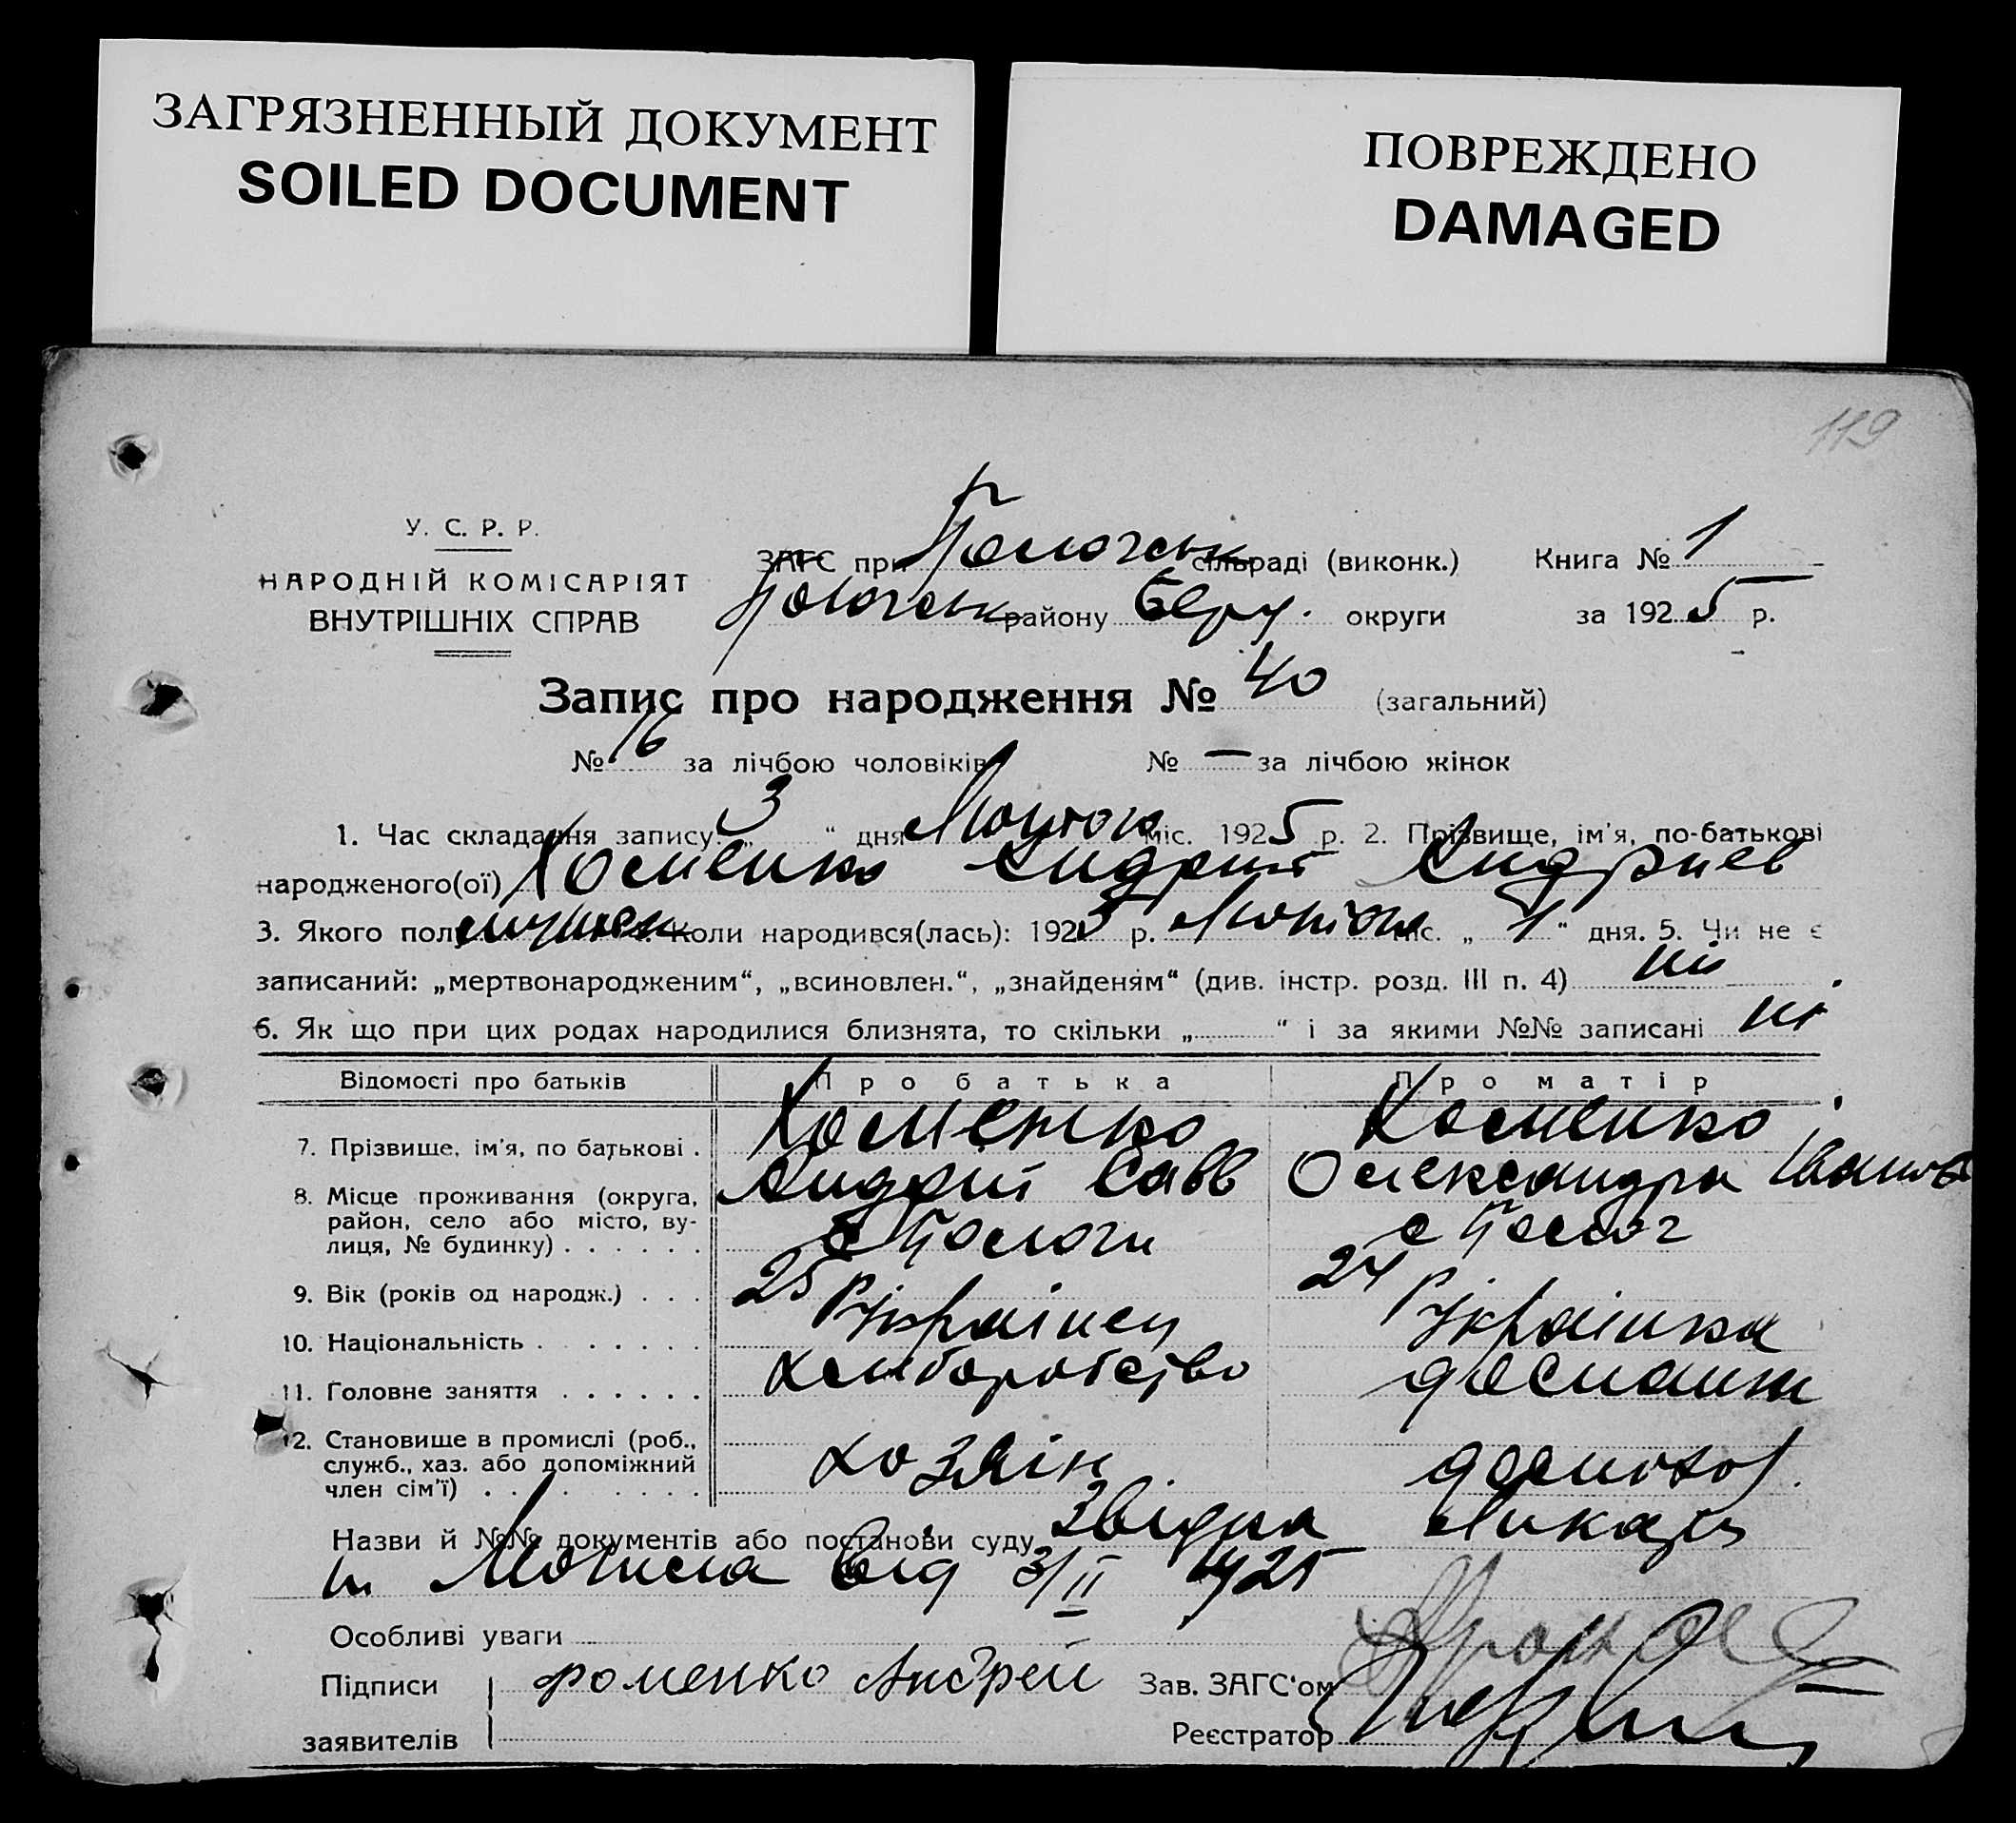 ЗАГРЯЗНЕННЫЙ ДОКУМЕНТ
SOILED DOCUMENT
ПОВРЕЖДЕНО
DAMAGED
119
У. С. Р. Р.
НАРОДНІЙ КОМІСАРІЯТ
ВНУТРІШНІХ СПРАВ
ЗАГС при Пологськ сільраді (виконк.) Книга № 1
Пологськ району Берд. округи за 1925 р.
Запис про народження № 40 (загальний)
№ 16 за лічбою чоловіків № — за лічбою жінок
1. Час складання запису: „3“ дня Лютого міс. 1925 р. 2. Прізвище, ім'я, по-батькові
народженого(ої) Хоменко Андрій Андріев
3. Якого полу 4. Коли народився(лась): 1925 р. Лютого міс. „1“ дня. 5. Чи не є
записаний: „мертвонародженим“, „всиновлен.“, „знайденям“ (див. інстр. розд. III п. 4) ні
6. Як що при цих родах народилися близнята, то скільки „ “ і за якими №№ записані ні
Відомості про батьків Про батька Про матір
7. Прізвище, ім'я, по батькові . Хоменко Хоменко
Андрій Савв Олександра Іванов
8. Місце проживання (округа, район, село або місто, вулиця, № будинку) . . . . . . с Пологи с Полог
9. Вік (років од народж.) . . . 25 р 24 р
10. Національність . . . . . . . Українец Українка
11. Головне заняття . . . . . . хліборобство домашн
12. Становище в промислі (роб., служб., хаз. або допоміжний член сім'ї) . . . . . . . . хозяін
Назви й №№ документів або постанови суду Звідка
від 3/II 1925
Особливі уваги
Підписи Фоменко Андрей Зав. ЗАГС'ом
заявителів Реєстратор